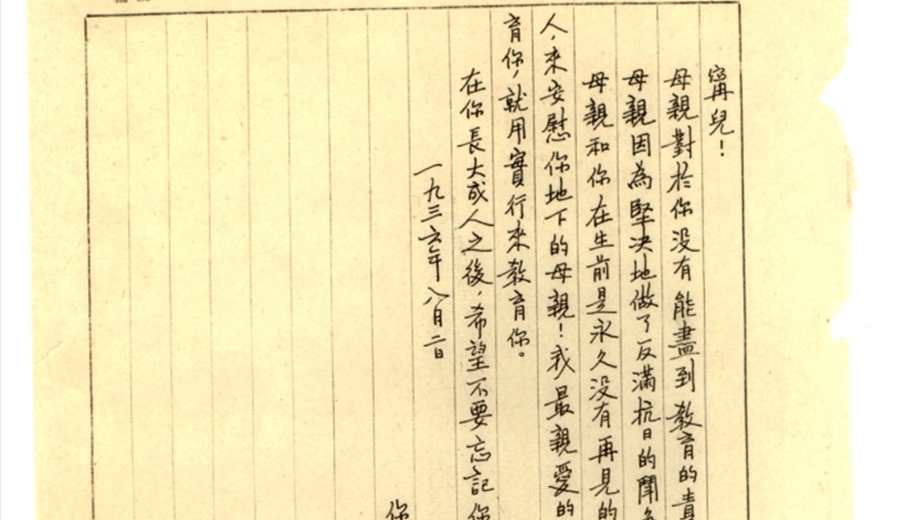 甯兒！
母親對於你没有能盡到教育的責
母親因為堅决地做了反滿抗日的鬥
母親和你在生前是永久没有再見的
人，來安慰你地下的母親！我最親愛的
育你，就用實行來教育你。
在你長大成人之後，希望不要忘記你
一九三六年八月二日
你